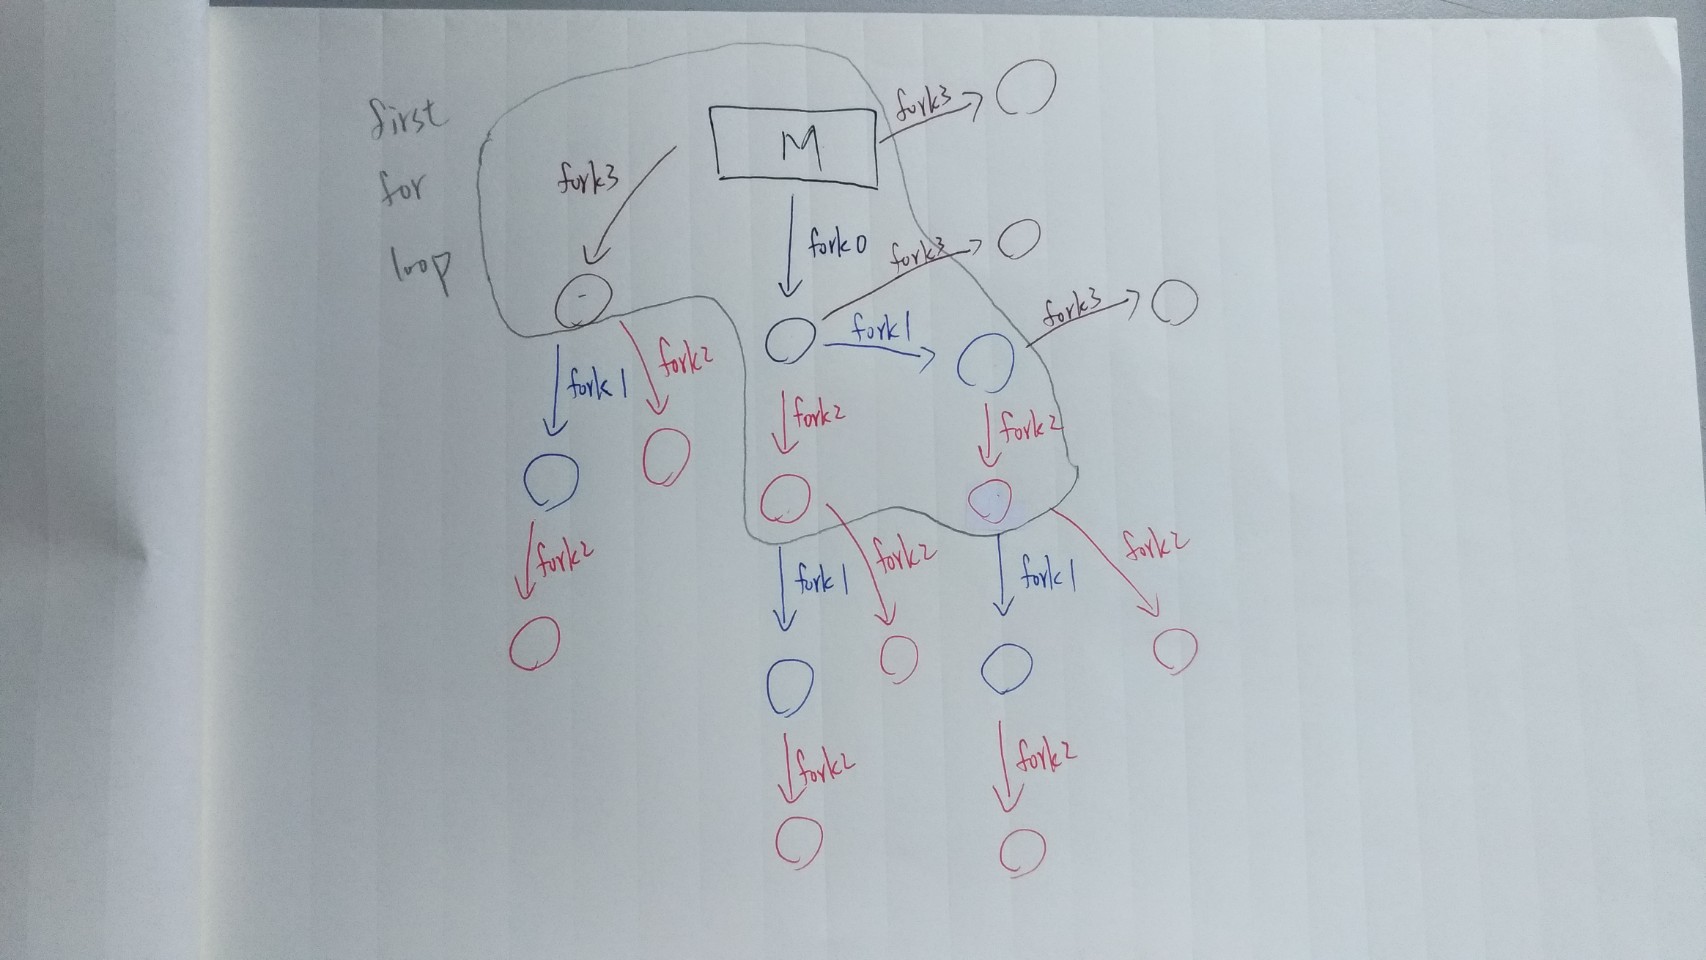 first
for
loop
M
fork3
fork3
fork0
fork3
fork1
fork3
fork1
fork2
fork2
fork2
fork2
fork1
fork2
fork1
fork2
fork2
fork2